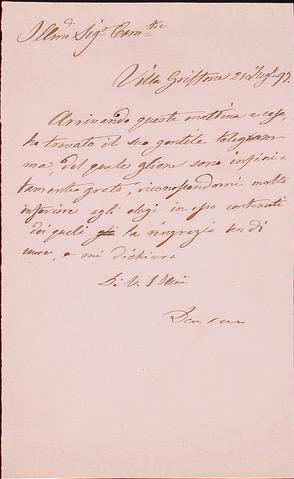 Illmo Sigr Comtre
Villa 21 97
Arrivando questa mattina a casa,
ho trovato il suo gentile telegram-
ma, del quale gliene sono infini-
tamente grato, riconoscendomi molto
inferiore agli elogi in esso contenuti
dei quali la ringrazio ben di
cuore, e mi dichiaro
Di V. S Illma